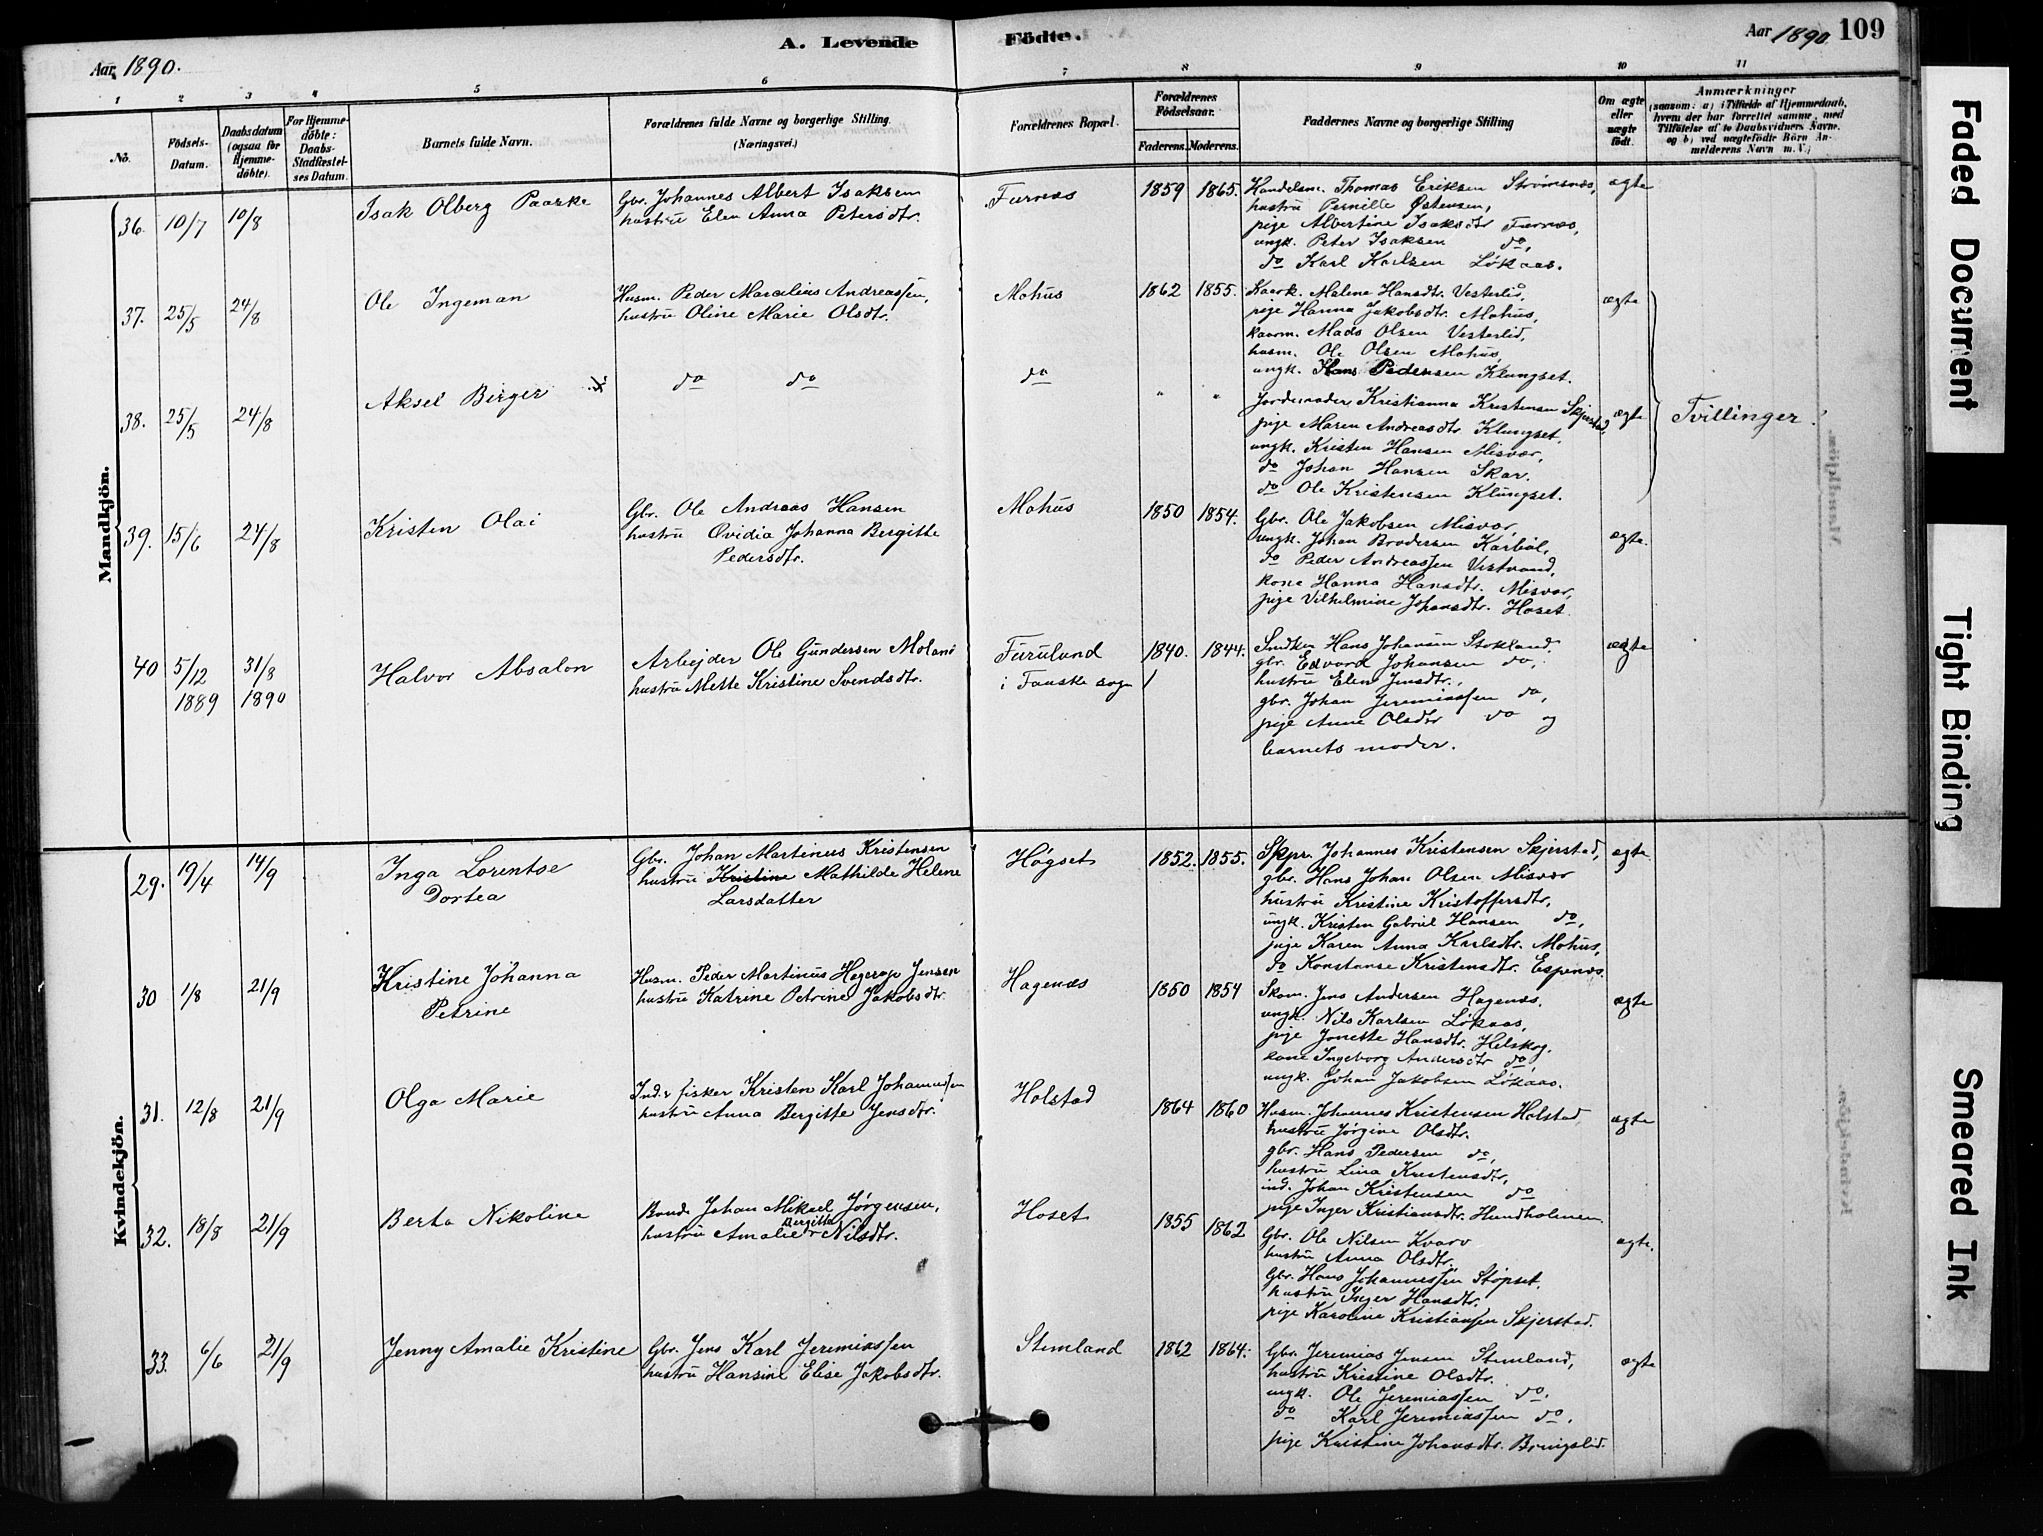 A. Levende Födte.
Aar 1890.
Aar 1890 109
1 2 3 4 5 6 7 8 9 10 11
No.
Födsels-Datum.
Daabsdatum (ogsaa for Hjemmedöbte).
For Hjemmedöbte: Daabs-Stadfæstelses Datum.
Barnets fulde Navn.
Forældrenes fulde Navne og borgerlige Stilling (Næringsvei.)
Forældrenes Bopæl.
Forældrenes Födselsaar.
Faderens. Moderens.
Faddernes Navne og borgerlige Stilling
Om ægte eller uægte födt.
Anmærkninger
(saasom: a) i Tilfælde af Hjemmedaab, hvem der har forrettet samme, med Tilföielse af to Daabsvidners Navne, og b) ved uægtefödte Börn Anmelderens Navn m. V.)
Mandkjön.
36. 10/7 10/8 Isak Olberg Paarske
Gbr. Johannes Albert Isaksen
hustru Elen Anna Petersdtr.
Furnes 1859 1865.
Handelsm. Thomas Eriksen Strömsnes,
hustru Pernille Østensen,
pige Albertine Isaksdtr Furnes,
ungk. Peter Isaksen do,
do Karl Karlsen Løkaas.
ægte
37. 25/5 24/8 Ole Ingeman
Husm. Peder Marcelius Andreassen,
hustru Oline Marie Olsdtr.
Mohus 1862 1855.
Kaark. Malene Hansdtr. Vesterlid,
pige Hanna Jakobsdtr. Mohus,
kaarm. Mads Olsen Vesterlid,
husm. Ole Olsen Mohus,
ungk. Hans Pedersen Klungset.
ægte
38. 25/5 24/8 Aksel Birger
do do
do " "
Jordemoder Kristianna Kristensen Skjerstad,
pige Maren Andreasdtr Klungset,
ungk. Kristen Hansen Misvær,
do Johan Hansen Skar.
do Ole Kristensen Klungset.
ægte
Tvillinger.
39. 15/6 24/8 Kristen Olai
Gbr. Ole Andreas Hansen
hustru Ovidia Johanna Bergitte
Pedersdtr.
Mohus 1850 1854.
Gbr. Ole Jakobsen Misvær,
ungk. Johan Brodersen Karbøl,
do Peder Andreassen Vestvand,
kone Hanna Hansdtr. Misvær,
pige Vilhelmine Johansdtr. Hoset
ægte.
40 5/12 1889 31/8 1890 Halvor Absalon
Arbejder Ole Gundersen Molani
hustru Mette Kristine Svendsdtr.
Furulund
i Fauske sogn
1840. 1844.
Smlker Hans Johansen Stokland
gbr. Edvard Johansen do,
hustru Elen Jensdtr.,
gbr. Johan Jeremiassen do,
pige Anne Olsdtr do og
barnets moder.
ægte
Kvindekjön.
29. 19/4 14/9 Inga Lorentse
Dortea
Gbr. Johan Martinus Kristensen
hustru Kristine Mathilde Helene
Larsdatter
Høgset 1852. 1855.
Skpr. Johannes Kristensen Skjerstad,
gbr. Hans Johan Olsen Misvær
hustru Kristine Kristoffersdtr,
ungk. Kristen Gabriel Hansen do,
pige Karen Anna Karlsdtr. Mohus,
do Konstanse Kristensdtr. Espenes.
ægte
30 1/8 21/9 Kristine Johanna
Petrine
Husm. Peder Martinus Hegerup Jensen
hustru Katrine Petrine Jakobsdtr.
Hagenes 1850 1854
Skom. Jens Andersen Hagenes.
ungk. Nils Karlsen Løkaas,
pige Jonette Hansdtr. Helskog.
kone Ingeborg Andersdtr do,
ungk. Johan Jakobsen Løkaas.
ægte
31. 12/8 21/9 Olga Marie
Ind. & fisker Kristen Karl Johannessen
hustru Anna Bergitte Jensdtr.
Holstad 1864 1860
Husm. Johannes Kristensen Holstad
hustru Jørgine Olsdtr.
gbr. Hans Pedersen do,
hustru Lina Kristensdtr,
ind. Johan Kristensen do
pige Inger Kristiansdtr. Hundholmen
ægte
32. 18/8 21/9 Berta Nikoline
Bonde Johan Mikael Jørgensen,
hustru Amalie Bergitte Nilsdtr.
Hoset 1855 1862
Gbr. Ole Nilsen Kvarv
hustru Anna Olsdtr.
Gbr. Hans Johannessen Støpset.
hustru Inger Hansdtr.
pige Karoline Kristiansen Skjerstad.
ægte.
33. 6/6 21/9 Jenny Amalie Kristine
Gbr. Jens Karl Jeremiassen
hustru Hansine Elise Jakobsdtr.
Stemland 1862 1864.
Gbr. Jeremias Jensen Stemland,
hustru Kristine Olsdtr.
ungk. Ole Jeremiassen do.
do Karl Jeremiassen do.
pige Kristine Johansdtr. Bringslid.
ægte
Faded Document
Tight Binding
Smeared Ink